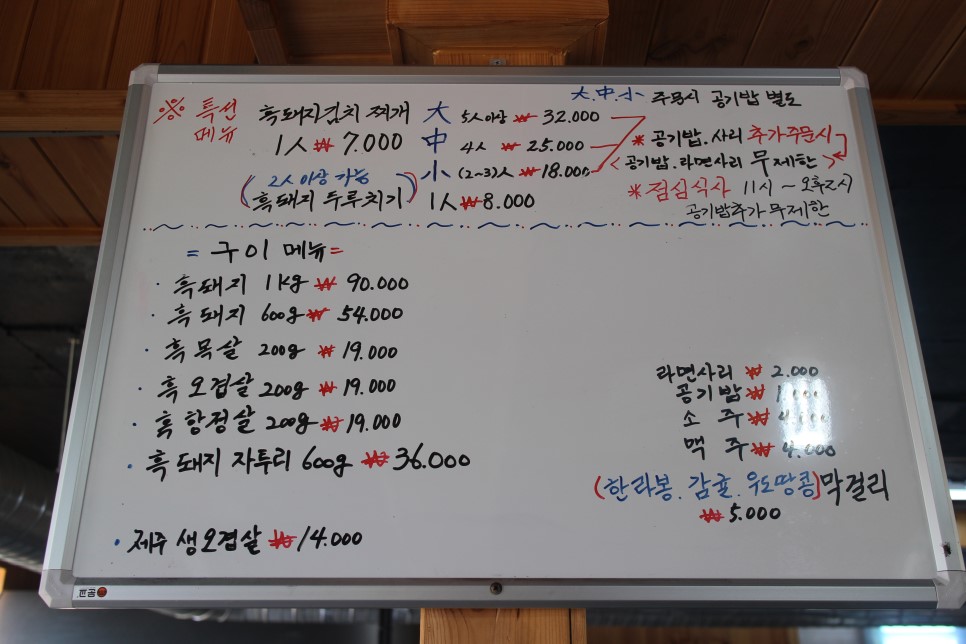 ※ 특선 메뉴
大.中.小 주문시 공기밥 별도
흑돼지김치찌개 大 5人이상 ₩ 32.000
1人 ₩ 7.000 中 4人 ₩ 25.000
小 (2~3)人 ₩ 18.000
※ 공기밥.사리 추가주문시
<공기밥.라면사리 무제한>
(2人이상 가능)
흑돼지 두루치기 1人 ₩ 8.000
※ 점심식사 11시 ~ 오후2시
공기밥추가 무제한
= 구이 메뉴 =
· 흑돼지 1kg ₩ 90.000
· 흑돼지 600g ₩ 54.000
· 흑목살 200g ₩ 19.000
· 흑오겹살 200g ₩ 19.000
· 흑항정살 200g ₩ 19.000
· 흑돼지 자투리 600g ₩ 36.000
· 제주 생오겹살 ₩ 14.000
라면사리 ₩ 2.000
공기밥 ₩
소주 ₩
맥주 ₩ 4.000
(한라봉.감귤.우도땅콩)막걸리
₩ 5.000